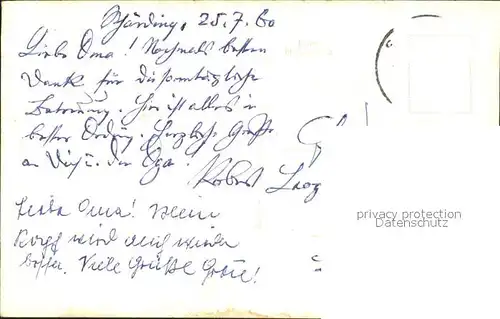 Schärding, 25.7.60
Liebe Oma! Nochmals besten
Dank für die sonntägliche
Betreuung. Hier ist alles in
bester Ordng. Herzliche Grüße
an Dich u. die Olga!
Robert
Liebe Oma! Mein
Kopf wird auch wieder
besser. Viele Grüße Grete!
privacy protection
Datenschutz